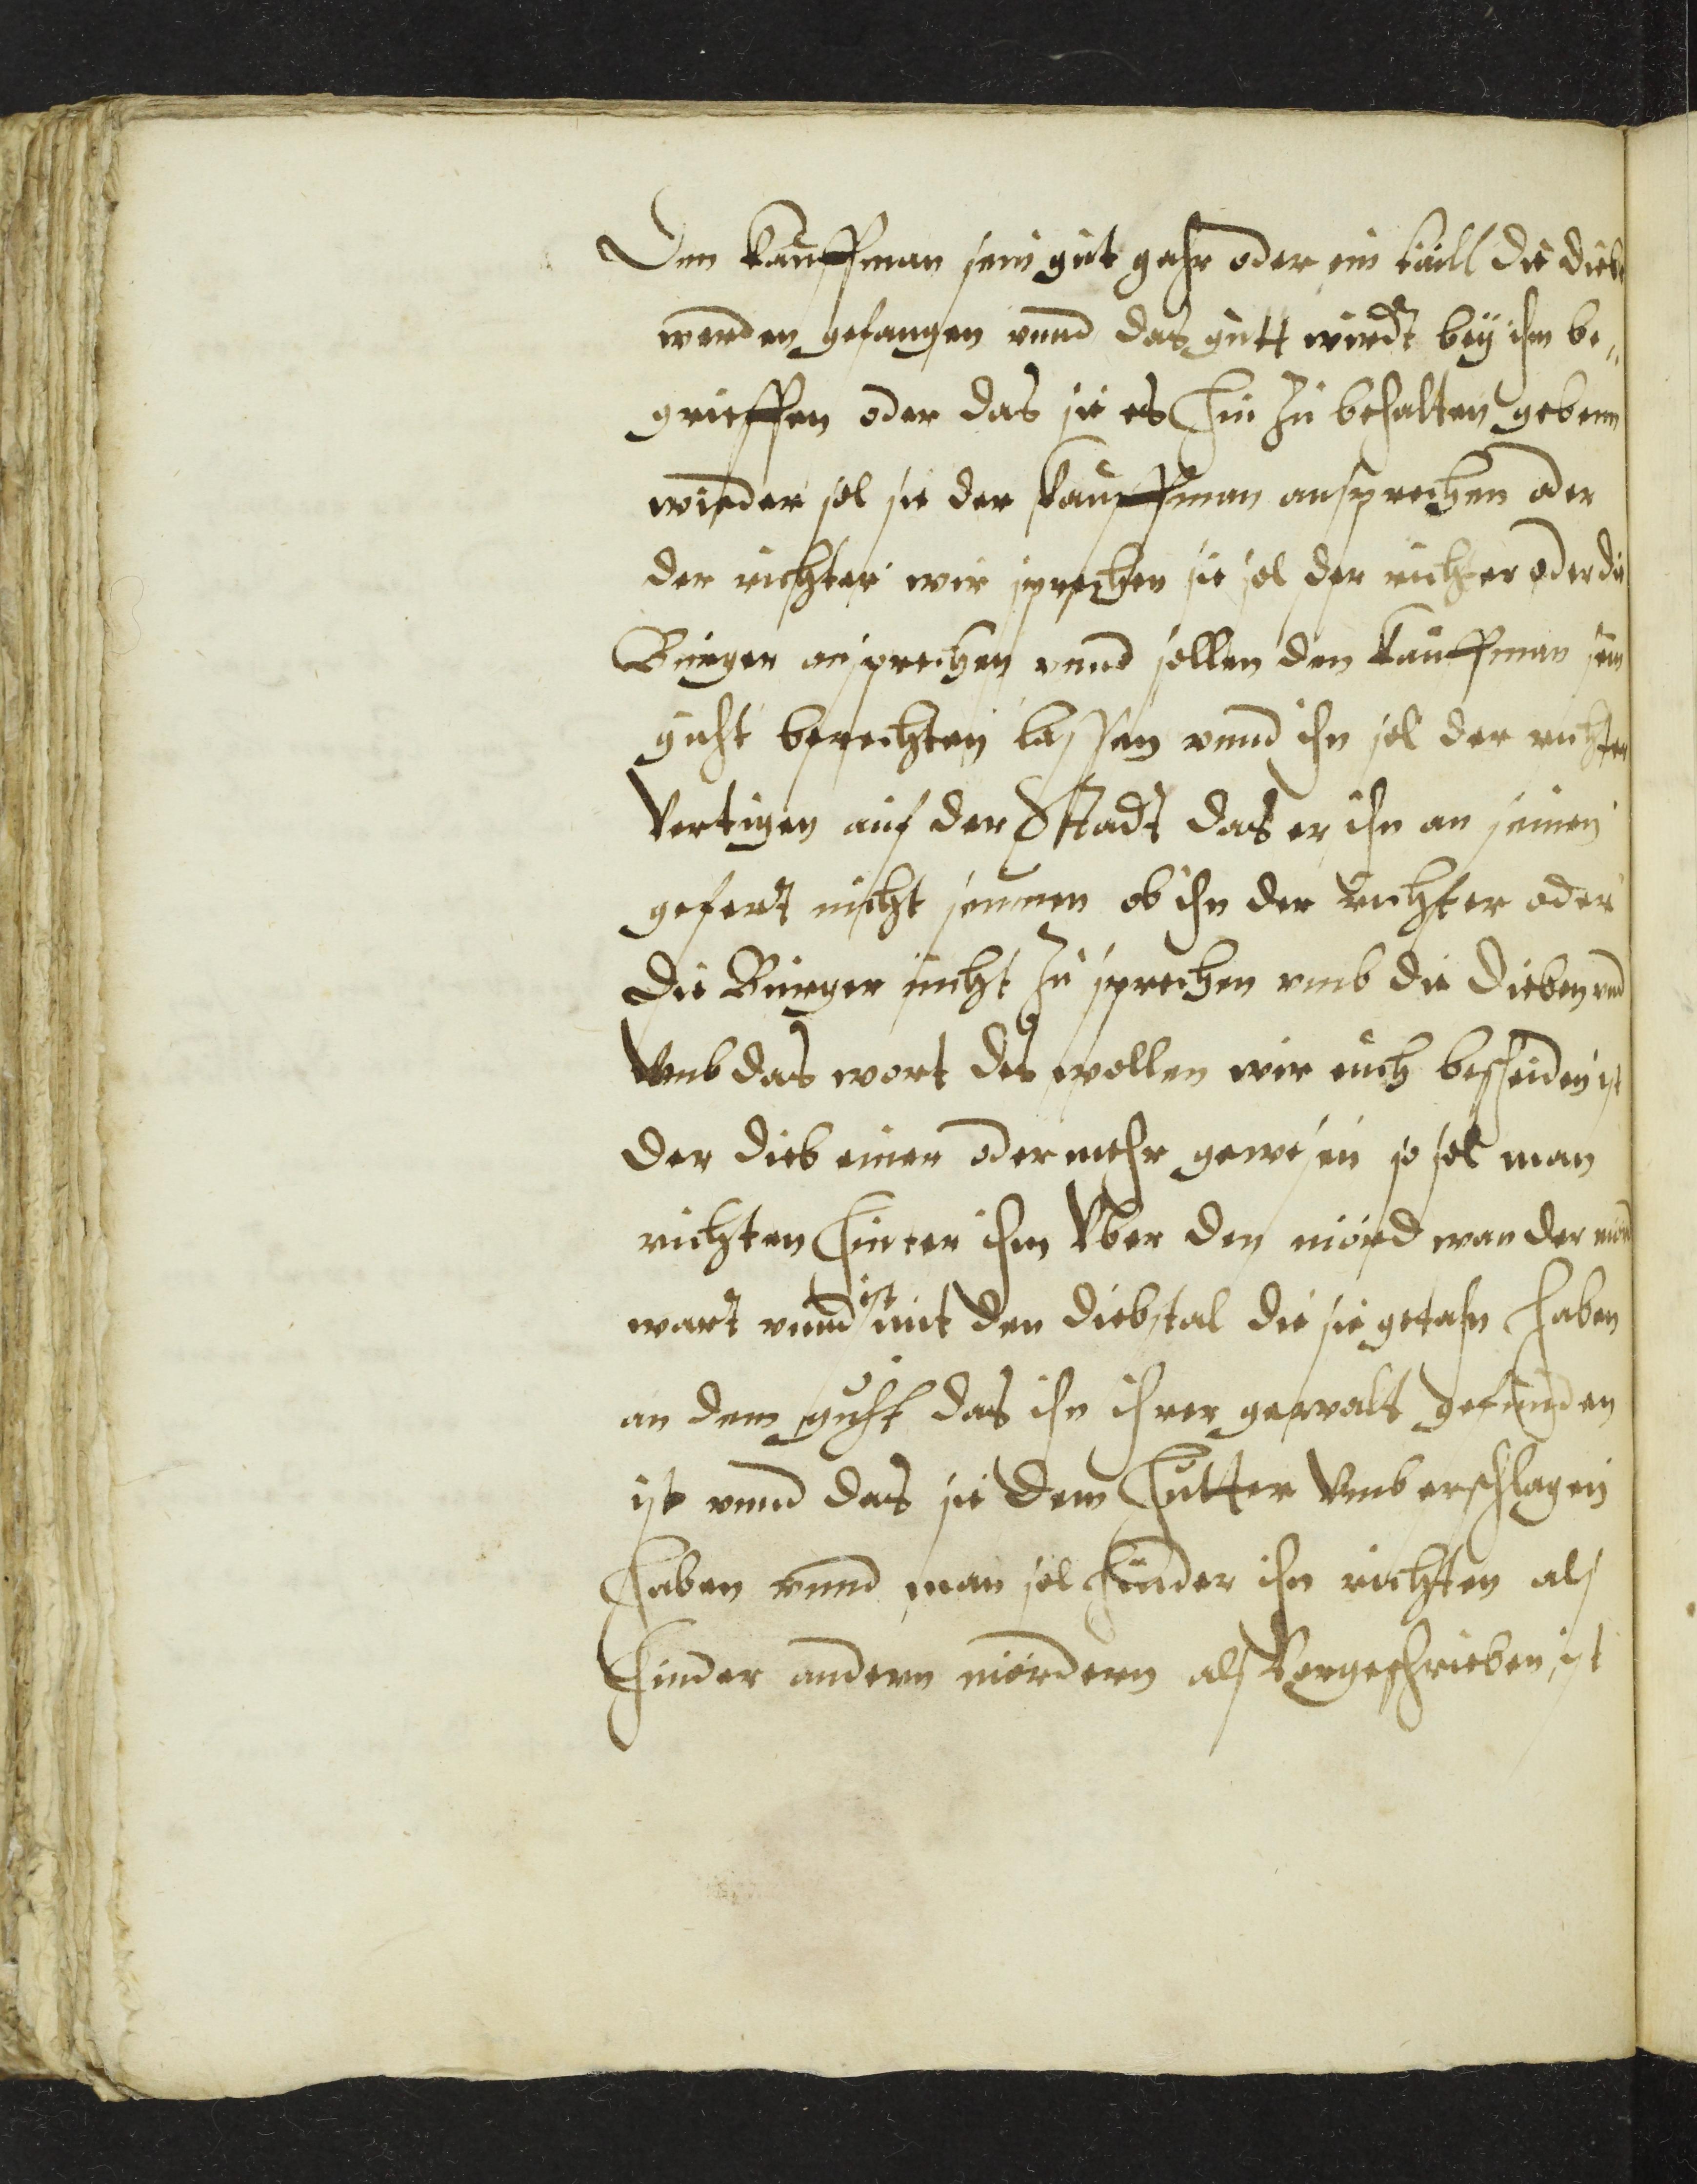 Dem Kauffman sein gut gahr oder ein taill die diebe
werden gefangen vnnd das gutt wirdt beÿ ihm be„
grieffen oder das sie es Hin zu behalten gebenn
wieder sol sie der kauffman ansprechen oder
der richter wir sprechen sie sol der richter oder die
Burger ansprechen vnnd sollen den kauffman sein
guht berechten lassen vnnd ihn sol der richter
Vertigen auf der Stadt das er ihn an seinen
gefert nicht seumen ob ihn der richter oder
die Burger nicht zu sprechen vmb die dieben vnd
Vmb das wort des wollen wir euch bescheiden ist
der dieb einer oder mehr gewesen so sol man
richten Hinter ihm Vber den mord wan der mord
wart vnnd ist mit den diebstal die sie getahn Haben
an dem guht das ihn ihrer gewalt gefunden
ist vnnd das sie dem Hutter Vmb erschlagen
Haben vnnd man sol Hinder ihn richten als
Hinder andern mördern als Vorgeschrieben ist